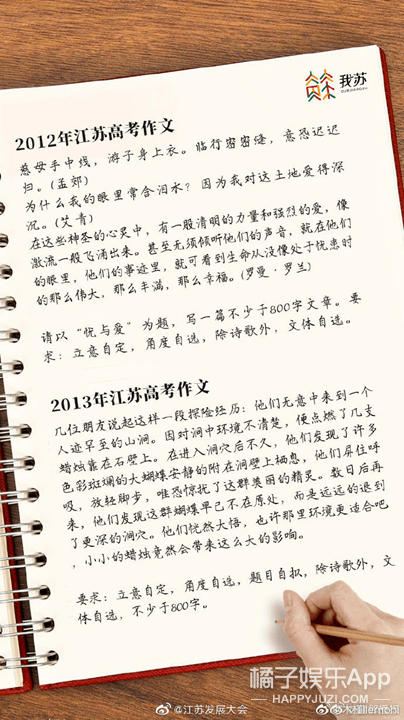 我苏
OUR JIANGSU
2012年江苏高考作文
慈母手中线，游子身上衣。临行密密缝，意恐迟迟
归。(孟郊)
为什么我的眼里常含泪水？因为我对这土地爱得深
沉。(艾青)
在这些神圣的心灵中，有一股清明的力量和强烈的爱，像
激流一般飞涌出来。甚至无须倾听他们的声音，就在他们
的眼里，他们的事迹里，就可看到生命从没像处于忧患时
的那么伟大，那么丰满，那么幸福。(罗曼·罗兰)
请以“忧与爱”为题，写一篇不少于800字文章。要
求：立意自定，角度自选，除诗歌外，文体自选。
2013年江苏高考作文
几位朋友说起这样一段探险经历：他们无意中来到一个
人迹罕至的山洞。因对洞中环境不清楚，便点燃了几支
蜡烛靠在石壁上。在进入洞穴后不久，他们发现了许多
色彩斑斓的大蝴蝶安静的附在洞壁上栖息，他们屏住呼
吸，放轻脚步，唯恐惊扰了这群美丽的精灵。数日后再
来，他们发现这群蝴蝶早已不在原处，而是远远的退到
了更深的洞穴。他们恍然大悟，也许那里环境更适合吧
，小小的蜡烛竟然会带来这么大的影响。
要求：立意自定，角度自选，题目自拟，除诗歌外，文
体自选，不少于800字。
橘子娱乐App
HAPPYJUZI.COM
@江苏发展大会